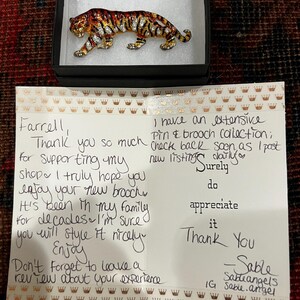 Farrell,
Thank you so much
for supporting my
shop~ I truly hope you
enjoy your new brooch~
It's been in my family
for decades~ I'm sure
you will style it nicely~
Enjoy
Don't forget to leave a
review about your experience
I have an extensive
Pin & brooch collection;
Check back soon as I post
new listings daily~
Surely
do
appreciate
it
Thank You
— Sable
IG